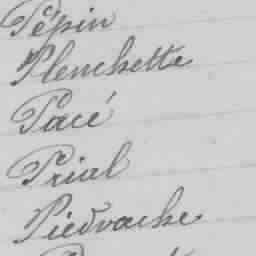 Pépin
Plenchette
Pacé
Prial
Piedvache